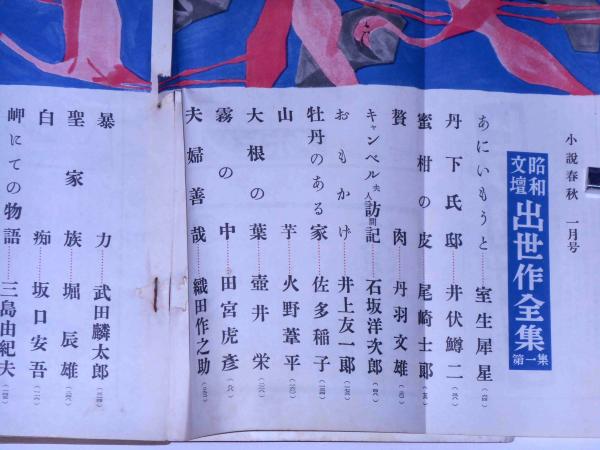 小説春秋 一月号
昭和文壇 出世作全集 第一集
あにいもうと……室生犀星
丹下氏邸……井伏鱒二
蜜柑の皮……尾崎士郎
贅肉……丹羽文雄
キャンベル夫人訪問記……石坂洋次郎
おもかげ……井上友一郎
牡丹のある家……佐多稲子
山芋……火野葦平
大根の葉……壺井栄
霧の中……田宮虎彦
夫婦善哉……織田作之助
暴力……武田麟太郎
聖家族……堀辰雄
白痴……坂口安吾
岬にての物語……三島由紀夫